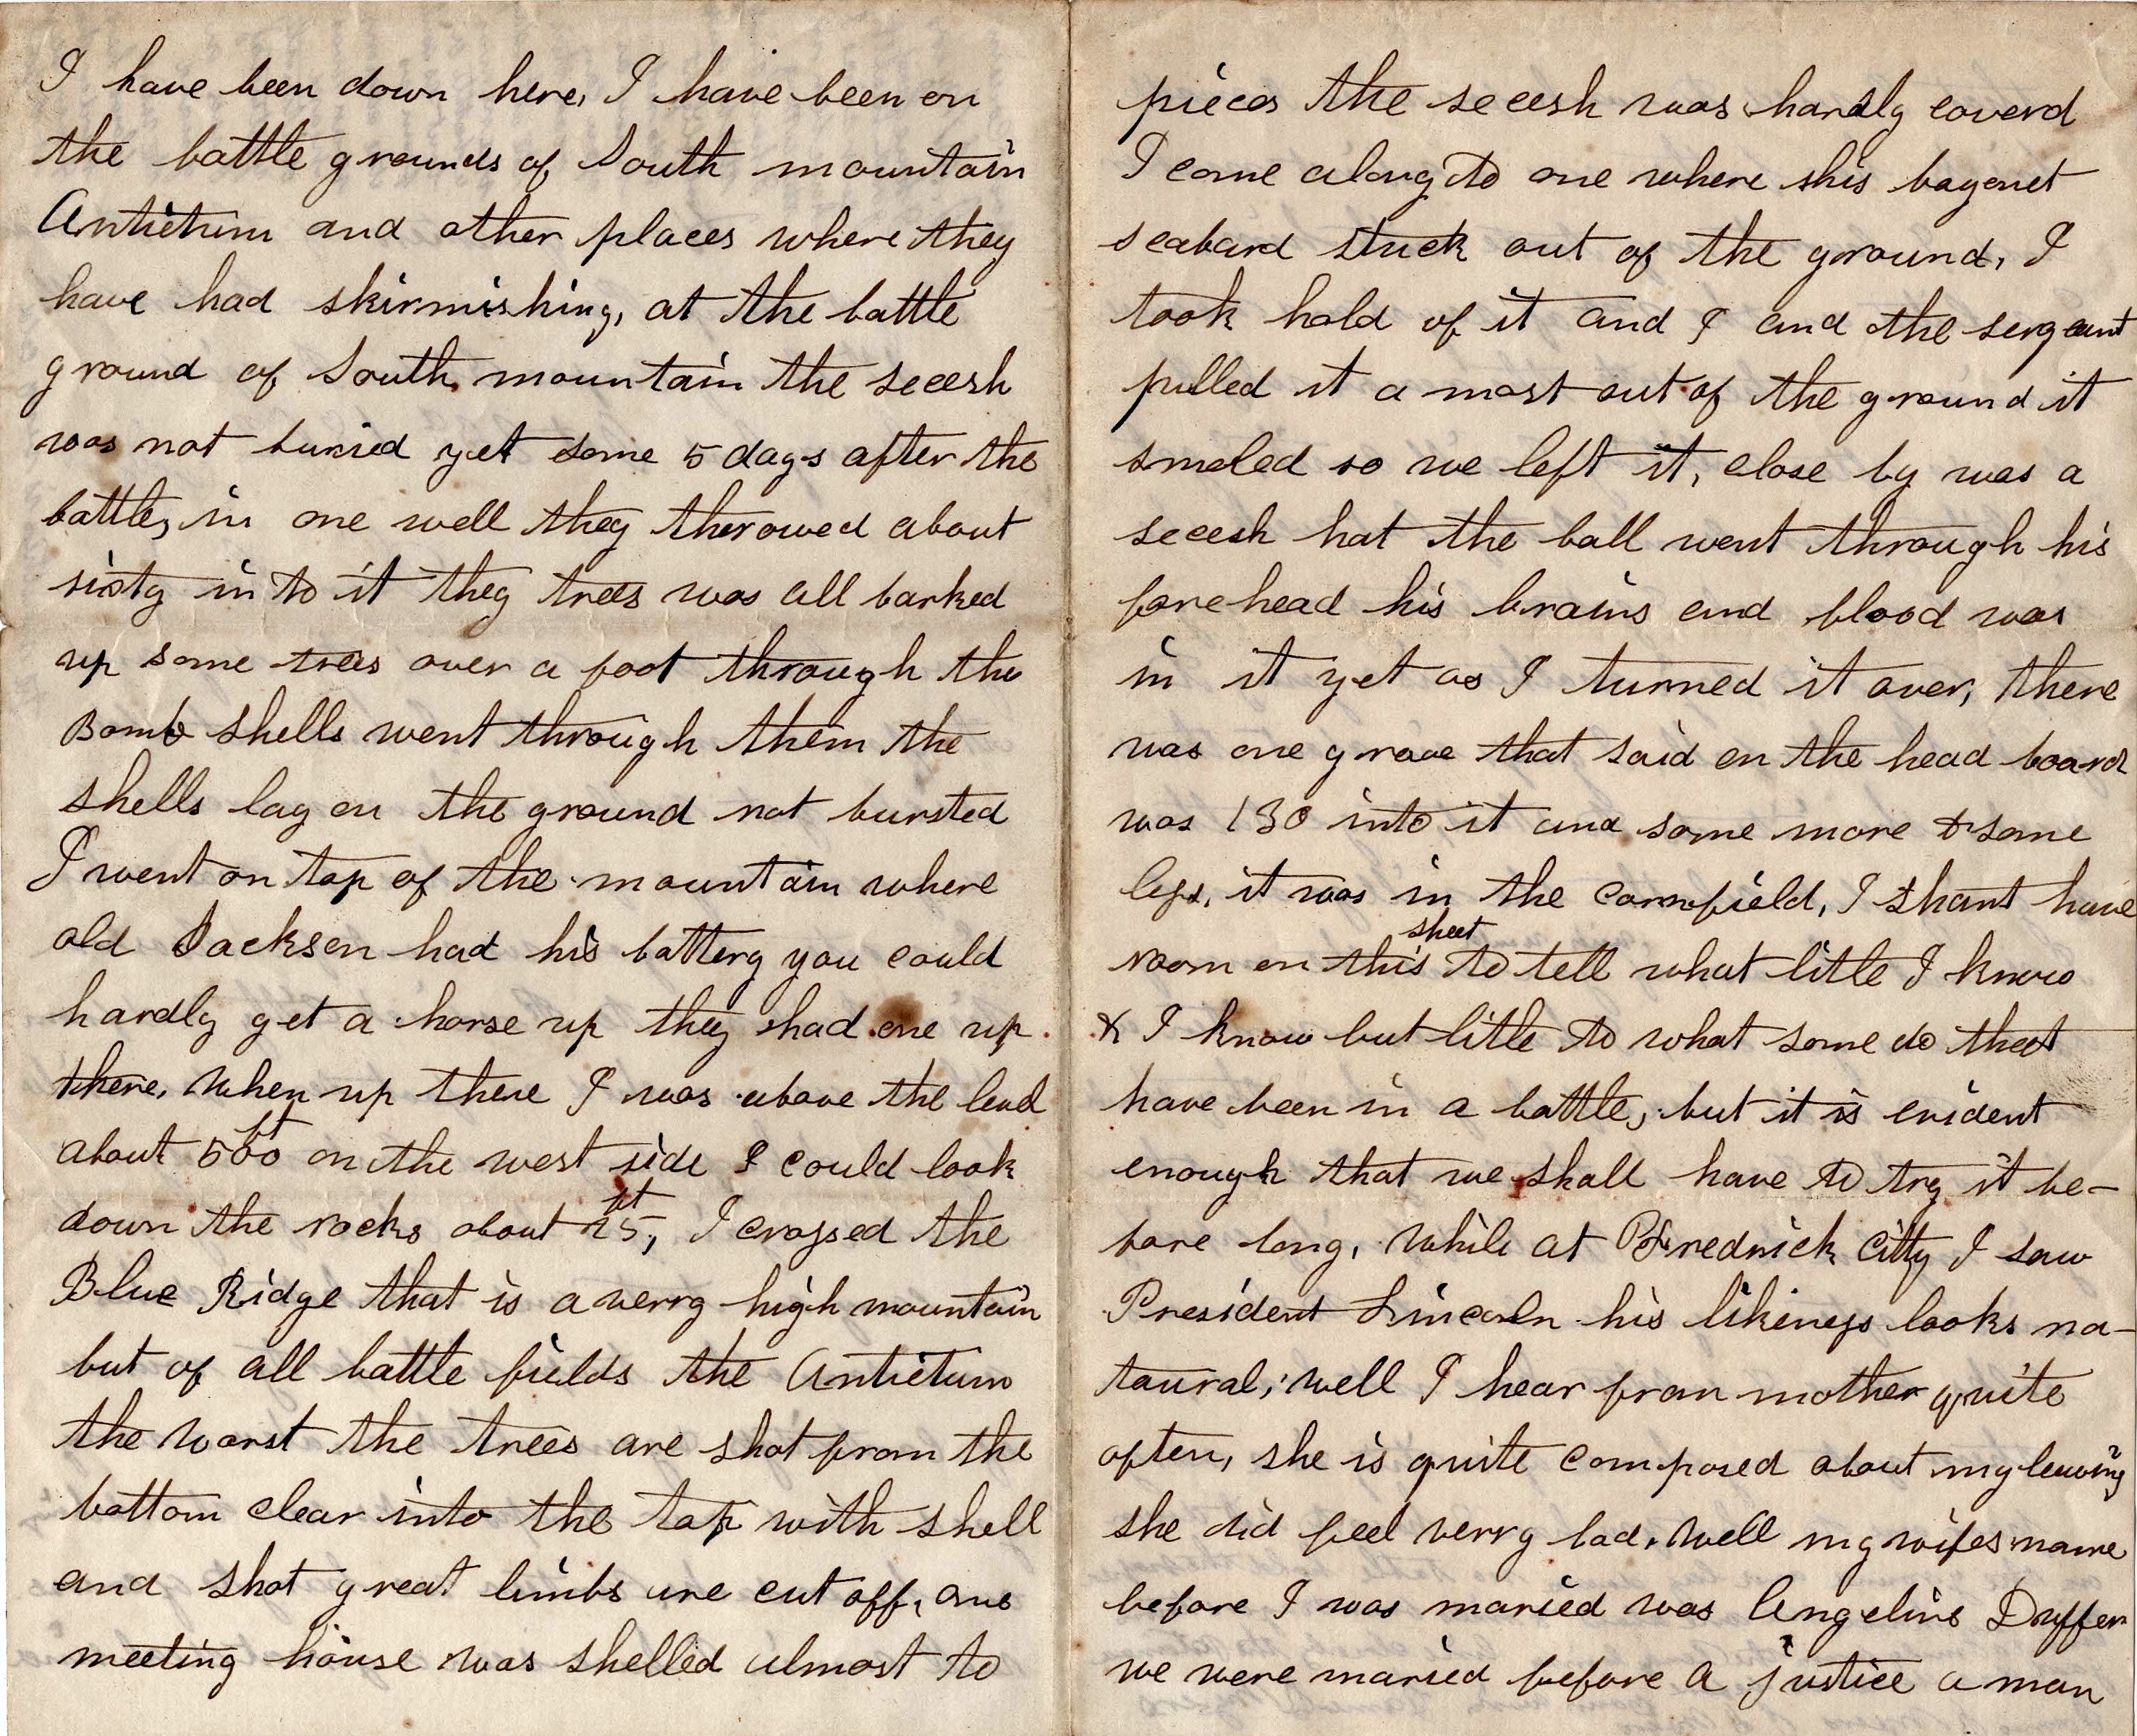 I have been down here, I have been on
the battle grounds of South mountain
Antietum and other places where they
have had skirmishing, at the battle
ground of South mountain the secesh
was not buried yet some 5 days after the
battle, in one well they therowed about
sixty in to it they trees was all barked
up some trees over a foot through the
Bomb shells went through them the
shells lay on the ground not bursted
I went on top of the mountain where
old Jackson had his battery you could
hardly get a horse up they had one up
there, When up there I was above the level
about 500 ft on the west side I could look
down the rocks about 25 ft, I crossed the
Blue Ridge that is a verry high mountain
but of all battle fields the Antietum
the worst the trees are shot from the
bottom clear into the top with shell
and shot great limbs are cut off, one
meeting house was shelled almost to
pieces the secesh was hardly coverd
I come along to one where his bayonet
scabard stuck out of the ground, I
took hold of it and I and the sergeant
pulled it a most out of the ground it
smeled so we left it, close by was a
secesh hat the ball went through his
forehead his brains and blood was
in it yet as I turned it over, there
was one grave that said on the head board
was 130 into it and some more & some
legs, it was in the cornfield, I shant have
room on this sheet to tell what litle I know
& I know but litle to what some do that
have been in a battle, but it is evident
enough that we shall have to try it be-
fore long, While at Fredrick Citty I saw
President Lincoln his likeness looks na-
taural; well I hear from mother quite
often, she is quite composed about my leaving
she did feel verry bad, Well my wifes name
before I was maried was Angeline Duffer
we were maried before a justice a man